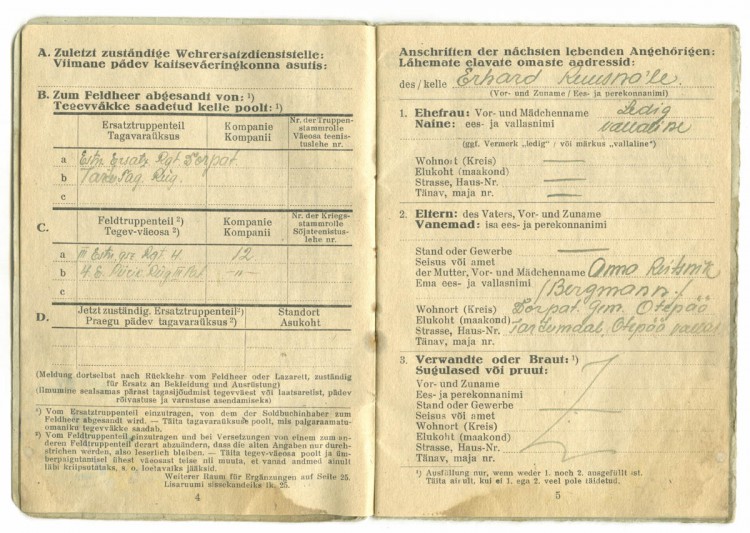 A. Zuletzt zuständige Wehrersatzdienststelle:
Viimane pädev kaitseväeringkonna asutis:
B. Zum Feldheer abgesandt von: ¹)
Tegevväkke saadetud kelle poolt: ¹)
Ersatztruppenteil Kompanie Nr. der Truppenstammrolle
Tagavaraüksus Kompanii Väeosa teenistuslehe nr.
a Estn. Ersatz Rgt Dorpat
b
c
C.
Feldtruppenteil ²) Kompanie Nr. der Kriegsstammrolle
Tegev-väeosa ²) Kompanii Sõjateenistuslehe nr.
a III Estn. gre Rgt. 4 12.
b 4. E. -"-
c
D.
Jetzt zuständig. Ersatztruppenteil²) Standort
Praegu pädev tagavaraüksus ²) Asukoht
(Meldung dortselbst nach Rückkehr vom Feldheer oder Lazarett, zuständig
für Ersatz an Bekleidung und Ausrüstung)
(Ilmumine sealsamas pärast tagasijõudmist tegevväest või laatsaretist, pädev
rõivastuse ja varustuse asendamiseks)
¹) Vom Ersatztruppenteil einzutragen, von dem der Soldbuchinhaber zum
Feldheer abgesandt wird. — Täita tagavaraüksuse poolt, mis palgaraamatu-
omaniku tegevväkke saadab.
²) Vom Feldtruppenteil einzutragen und bei Versetzungen von einem zum an-
deren Feldtruppenteil derart abzuändern, dass die alten Angaben nur durch-
strichen werden, also leserlich bleiben. — Täita tegev-väeosa poolt ja üm-
berpaigutamisel ühest väeosast teise nii muuta, et vanad andmed ainult
läbi kriipsutataks, s. o. loetavaiks jääksid.
Weiterer Raum für Ergänzungen auf Seite 25.
Lisaruumi sissekandeiks lk. 25.
4
Anschriften der nächsten lebenden Angehörigen:
Lähemate elavate omaste aadressid:
des / kelle Erhard Kuusmäle.
(Vor- und Zuname / Ees- ja perekonnanimi)
1. Ehefrau: Vor- und Mädchenname Ledig
Naine: ees- ja vallasnimi vallaline
(ggf. Vermerk „ledig" / või märkus „vallaline")
Wohnort (Kreis)
Elukoht (maakond)
Strasse, Haus-Nr.
Tänav, maja nr.
2. Eltern: des Vaters, Vor- und Zuname
Vanemad: isa ees- ja perekonnanimi
Stand oder Gewerbe
Seisus või amet
der Mutter, Vor- und Mädchenname Anna
Ema ees- ja vallasnimi (Bergmann.)
Wohnort (Kreis) Dorpat. Gem. Otepää
Elukoht (maakond)
Strasse, Haus-Nr. Tartumaal, Otepää vallas
Tänav, maja nr.
3. Verwandte oder Braut: ¹)
Sugulased või pruut:
Vor- und Zuname
Ees- ja perekonnanimi
Stand oder Gewerbe
Seisus või amet
Wohnort (Kreis)
Elukoht (maakond)
Strasse, Haus-Nr.
Tänav, maja nr.
¹) Ausfüllung nur, wenn weder 1. noch 2. ausgefüllt ist.
Täita ainult, kui ei 1. ega 2. veel pole täidetud.
5